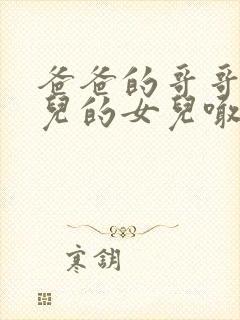 爸爸的哥哥
兒的女兒噉
寒鈅